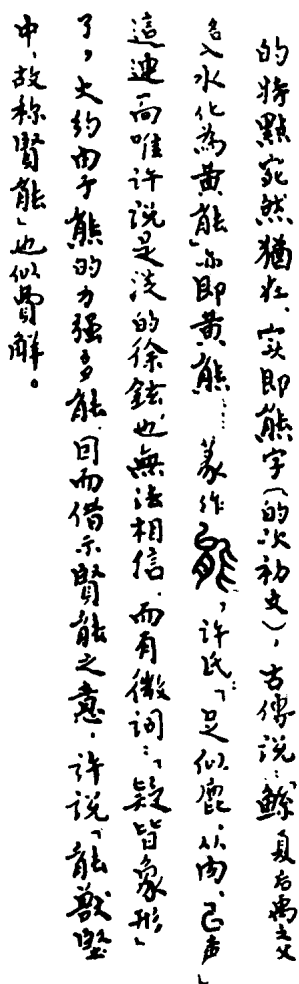 的特點宛然猶在、实即熊字(的次初文)，古傳説：「鯀夏后禹之父
名入水化為黄能」亦即黄熊……篆作能，許氏：「足似鹿、从肉、㠯声」
這連而唯許説是從的徐鉉也無法相信、而有微詞：「疑皆象形」
了，大約由于熊的力强多能、因而借示賢能之意、許説「能獸堅
中、故称賢能」也似費解。